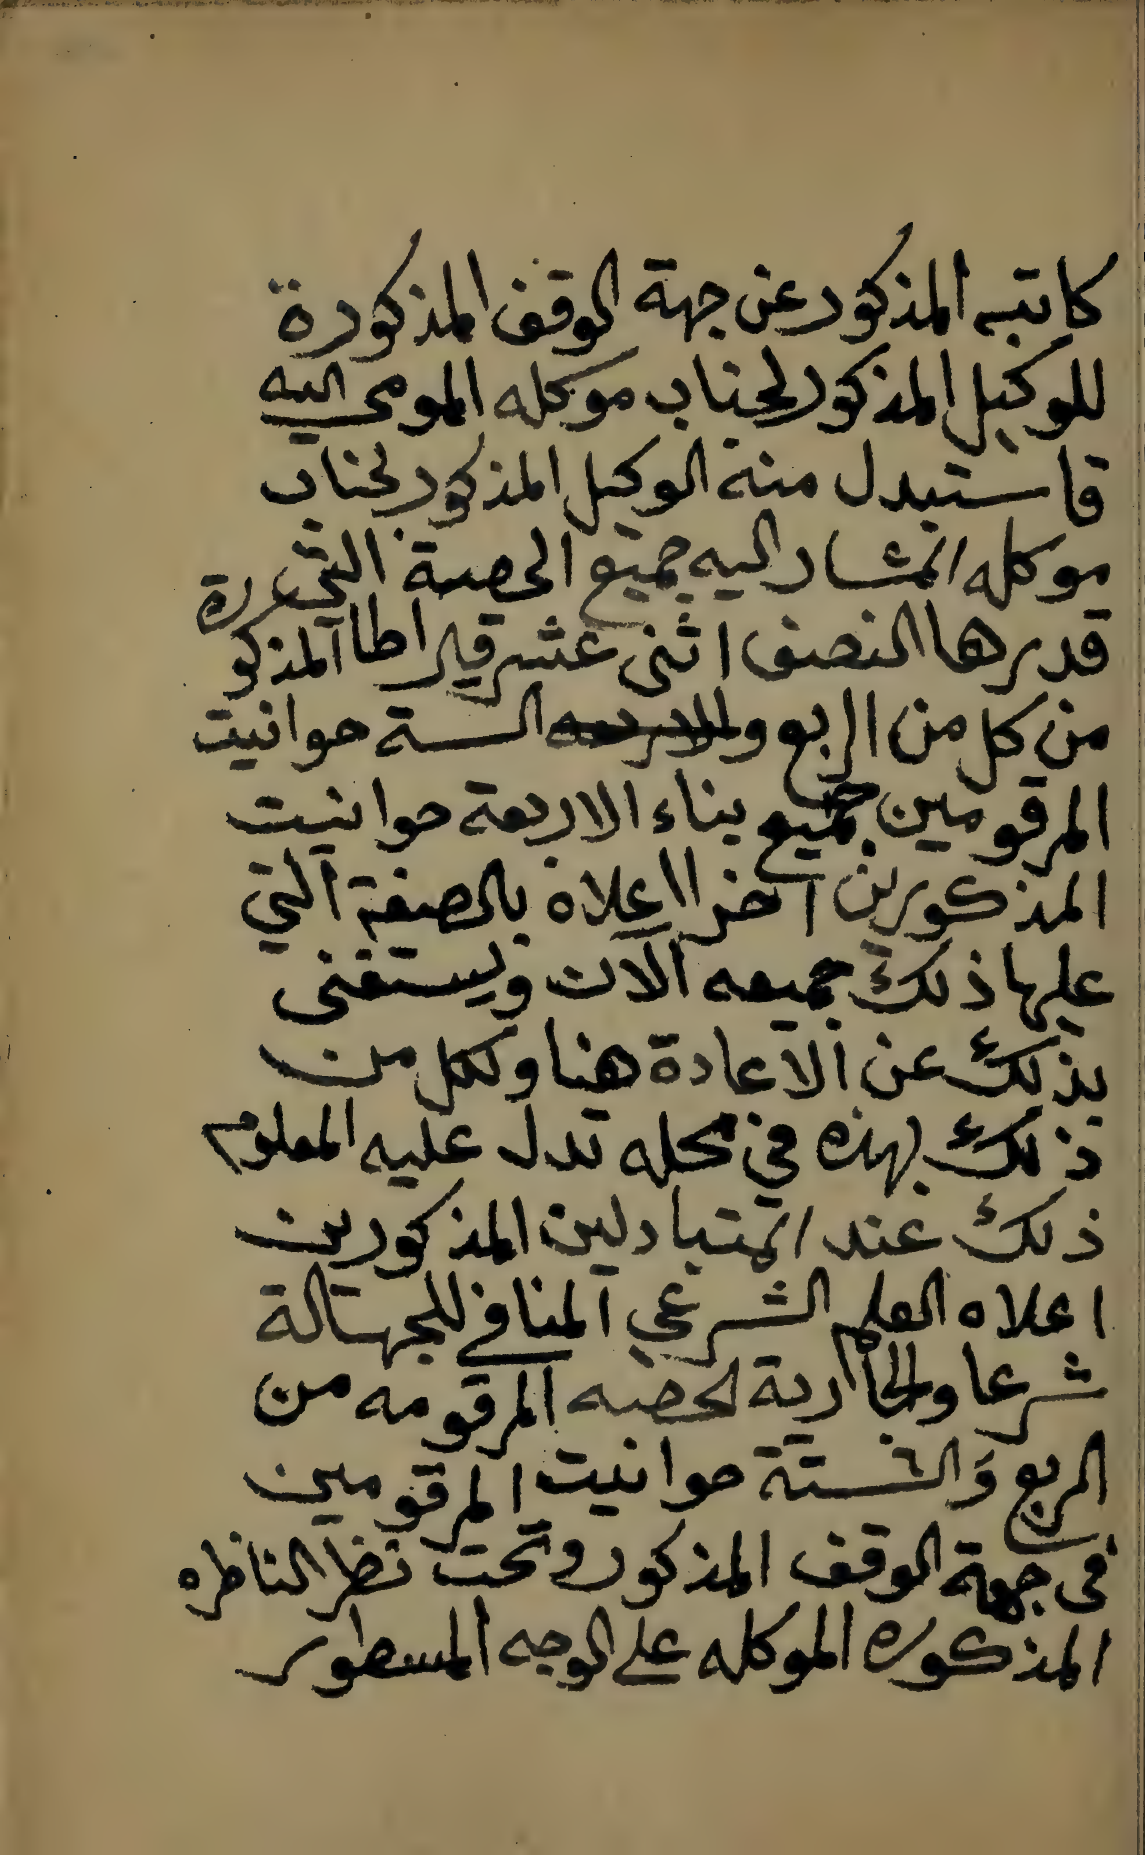 كاتبه المذكور عن جهة الوقف المذكورة
للوكيل المذكور لجناب موكله المومى اليه
فاستبدل منه الوكيل المذكور لجناب
موكله المشار اليه جميع الحصة التي
قدرها النصف اثنى عشر قيراطا المذكورة
من كل من الربع والستة حوانيت
المرقومين جميع بناء الاربعة حوانيت
المذكورين اخرا اعلاه بالصفة التي
عليها ذلك جميعه الآن ويستغنى
بذلك عن الاعادة هنا ولكل من
ذلك بهذه في محله تدل عليه المعلوم
ذلك عند المتبادلين المذكورين
اعلاه العلم الشرعي المنافي للجهالة
شرعا والجارية الحصه المرقومه من
الربع والستة حوانيت المرقومين
في جهة الوقف المذكور وتحت نظر الناظره
المذكوره الموكله على الوجه المسطور